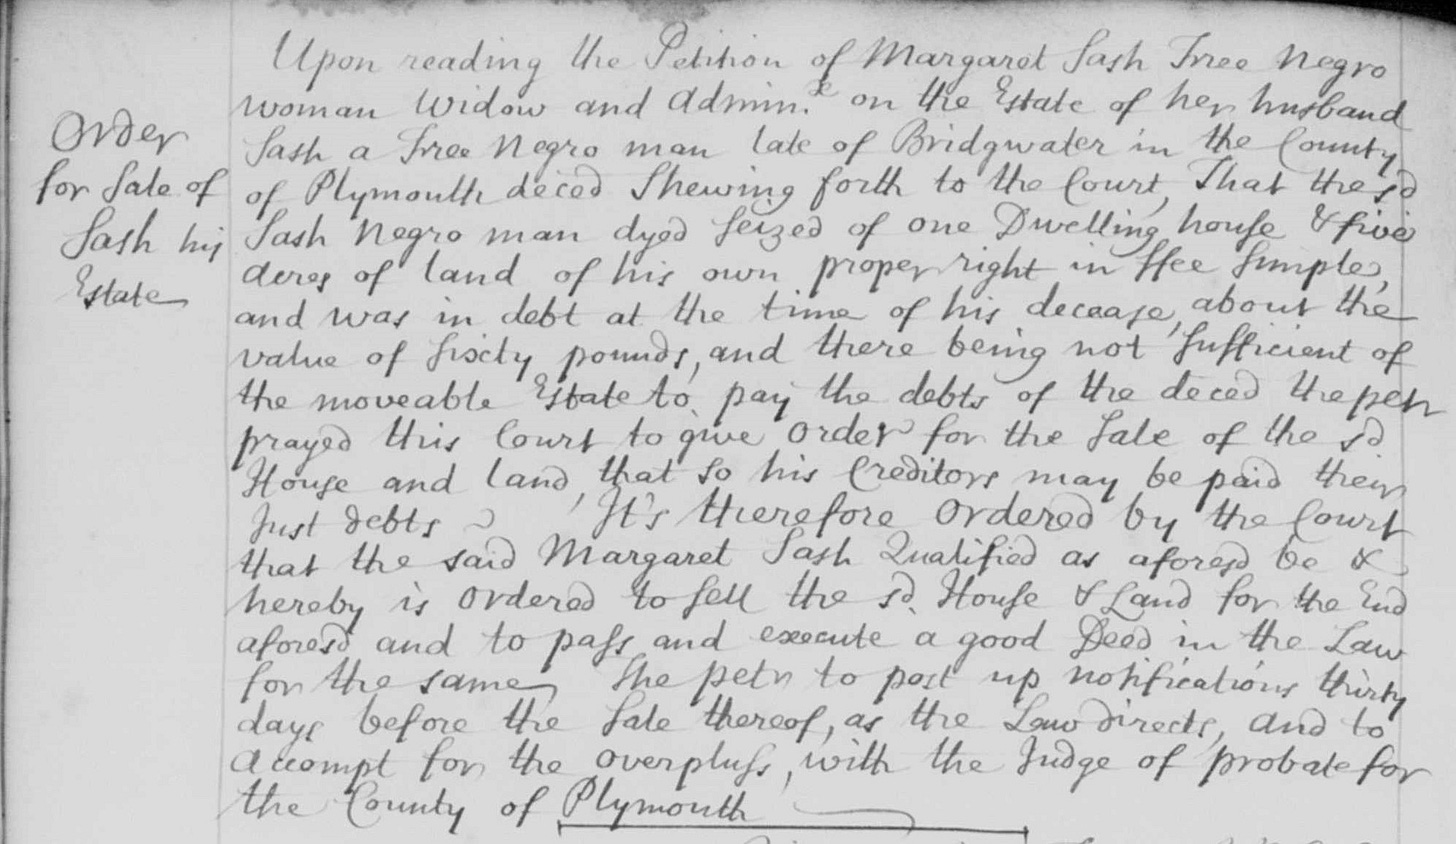 Order
for Sale of
Sash his
Estate
Upon reading the Petition of Margaret Sash Free Negro
woman Widow and Admin.x on the Estate of her husband
Sash a Free Negro man late of Bridgwater in the County
of Plymouth deced Shewing forth to the Court, That the sd
Sash Negro man dyed Seized of one Dwelling house & five
acres of land of his own proper right in ffee Simple,
and was in debt at the time of his decease, about the
value of Sixty pounds, and there being not Sufficient of
the moveable Estate to pay the debts of the deced the petr
prayed this Court to give order for the Sale of the sd
House and land, that so his Creditors may be paid their
Just debts It's therefore Ordered by the Court
that the said Margaret Sash Qualified as aforesd be &
hereby is Ordered to Sell the sd. House & Land for the End
aforesd and to pass and execute a good Deed in the Law
for the same, The petr to post up notifications thirty
days before the Sale thereof, as the Law directs, and to
Accompt for the overpluss, with the Judge of probate for
the County of Plymouth